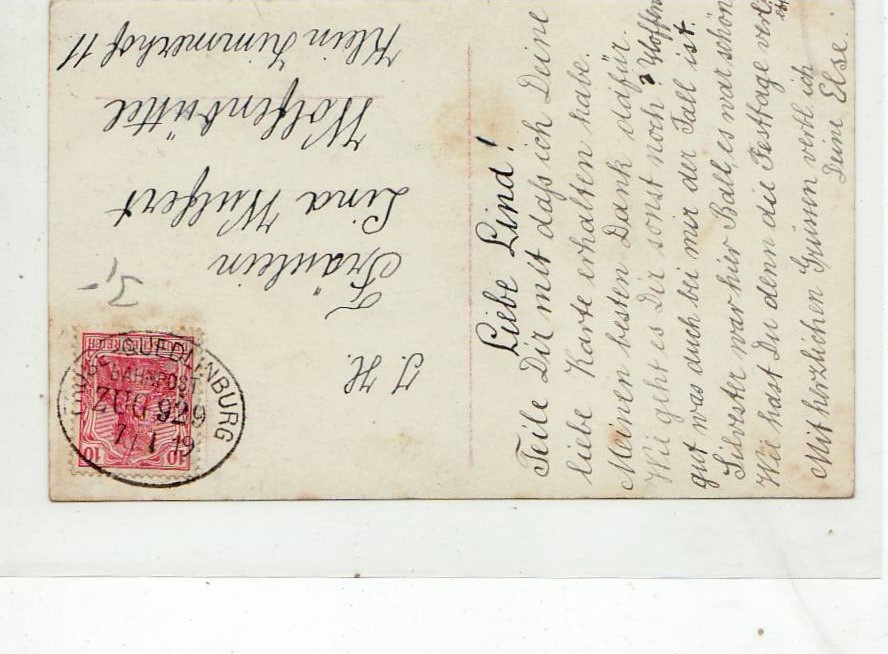 Liebe Lina!
Teile Dir mit daß ich Deine
liebe Karte erhalten habe.
Meinen besten Dank dafür.
Wie geht es Dir sonst noch? Hoffen
gut was auch bei mir der Fall ist.
Silvester war hier Ball, es war schön
Wie hast Du denn die Festtage verl.
Mit herzlichen Grüßen verbl. ich
Deine Else.
J. H.
Fräulein
Lina Wulfert
Wolfenbüttel
Klein Zimmerhof 11
3,-
QUEDLINBURG
BAHNPOST
ZUG 929
7/1 19
10 10